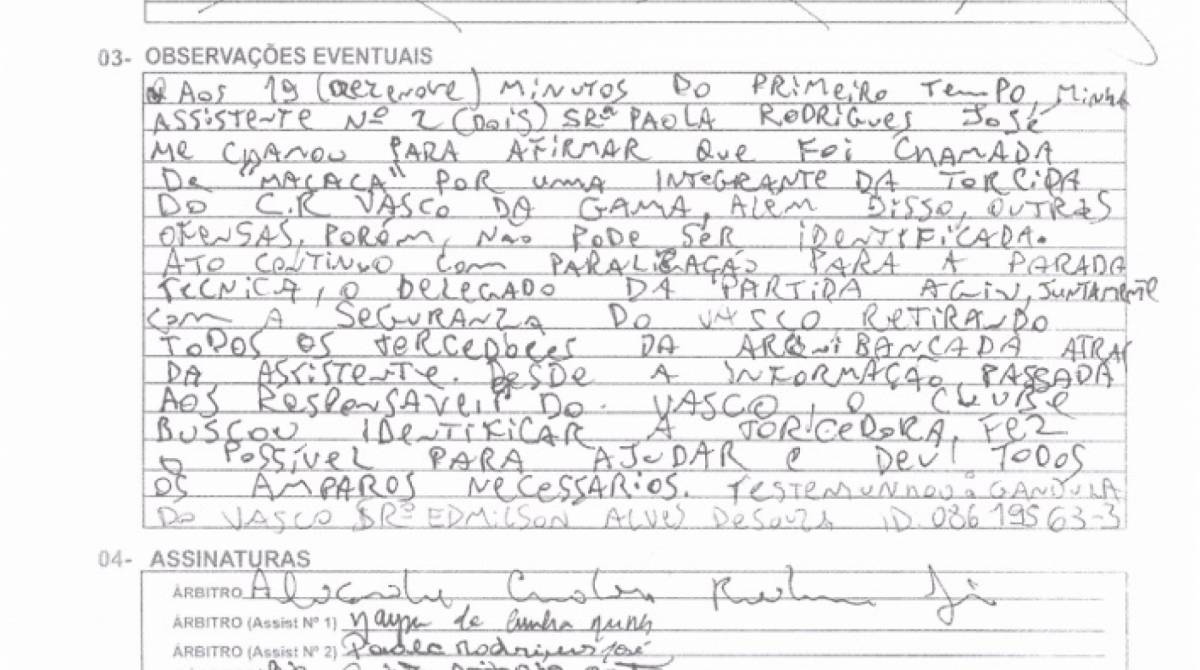 03- OBSERVAÇÕES EVENTUAIS
Aos 19 (DEZENOVE) MINUTOS DO PRIMEIRO TEMPO, MINHA
ASSISTENTE Nº 2 (DOIS) SRª PAOLA RODRIGUES JOSÉ
ME CHAMOU PARA AFIRMAR QUE FOI CHAMADA
DE "MACACA" POR UMA INTEGRANTE DA TORCIDA
DO C.R VASCO DA GAMA, ALÉM DISSO, OUTRAS
OFENSAS, PORÉM, NÃO PODE SER IDENTIFICADA.
ATO CONTINUO COM PARALIZAÇÃO PARA A PARADA
TECNICA, O DELEGADO DA PARTIDA AGIU, JUNTAMENTE
COM A SEGURANZA DO VASCO RETIRANDO
TODOS OS TORCEDORES DA ARQUIBANCADA ATRAS
DA ASSISTENTE. DESDE A INFORMAÇÃO PASSADA
AOS RESPONSAVEIS DO VASCO, O CLUBE
BUSCOU IDENTIFICAR A TORCEDORA, FEZ
O POSSÍVEL PARA AJUDAR E DEU TODOS
OS AMPAROS NECESSÁRIOS. TESTEMUNHOU O GANDULA
DO VASCO SRº EDMILSON ALVES DE SOUZA ID. 08619563-3
04- ASSINATURAS
ÁRBITRO
ÁRBITRO (Assist Nº 1) da cunha
ÁRBITRO (Assist Nº 2) Paola Rodrigues José